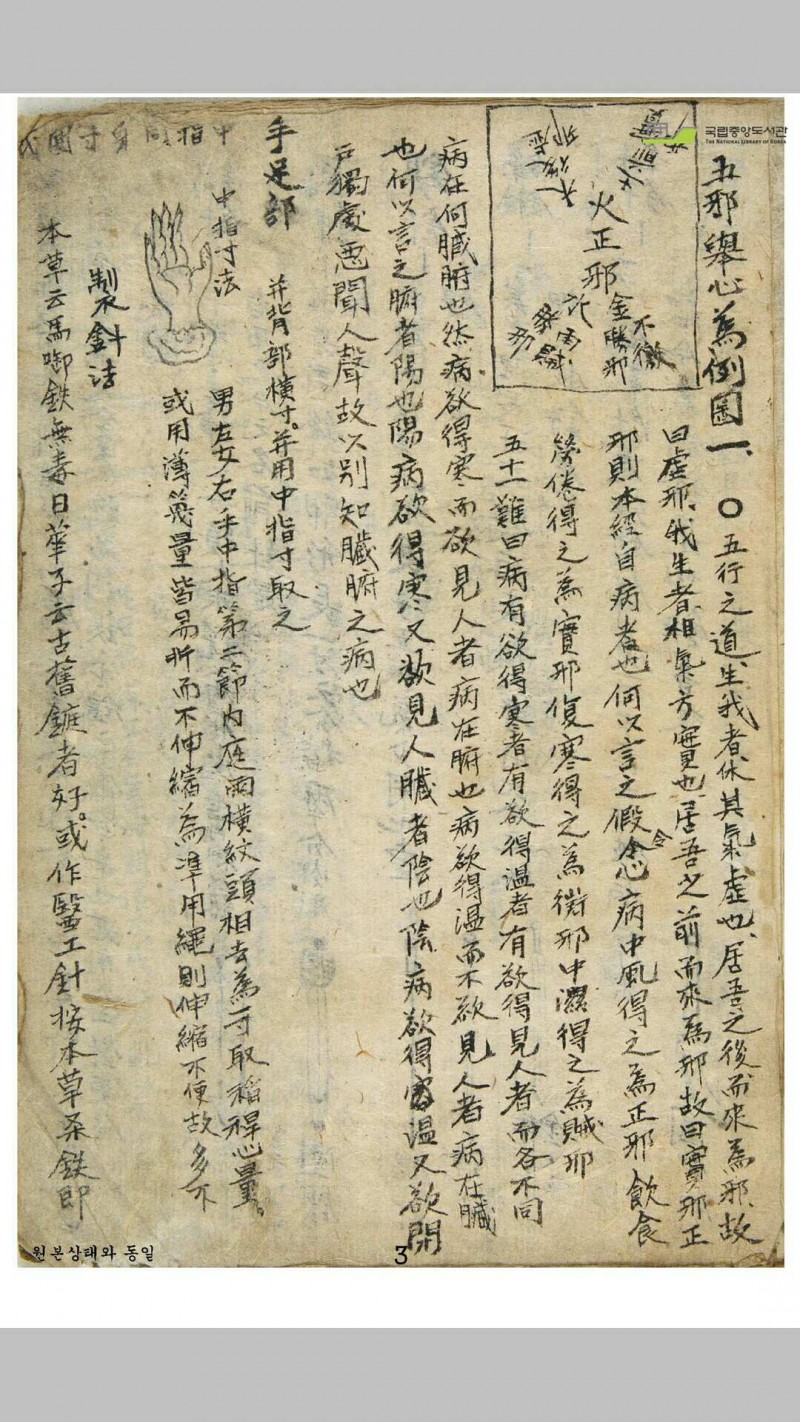 국립중앙도서관
THE NATIONAL LIBRARY OF KOREA
五邪舉心為例圖一
火正邪
金勝邪
不微
〇五行之道生我者休其氣虛也居吾之後而來為邪故
曰虛邪我生者相氣方實也居吾之前而來為邪故曰實邪正
邪則本經自病者也何以言之假令心病中風得之為正邪飲食
勞倦得之為實邪復寒得之為微邪中濕得之為賊邪
五十一難曰病有欲得寒者有欲得溫者有欲得見人者而各不同
病在何臟腑也然病欲得寒而欲見人者病在腑也病欲得溫而不欲見人者病在臟
也何以言之腑者陽也陽病欲得寒又欲見人臟者陰也陰病欲得溫又欲閉
戶獨處惡聞人聲故以別知臟腑之病也
手足部
并背部橫寸并用中指寸取之
中指寸法
男左女右手中指第二節內庭兩橫紋頭相去為一寸取稻稈心量
或用薄篾量皆易折而不伸縮為準用繩則伸縮不便故多不
製針法
本草云馬啣鉄無毒日華子云古舊鋌者好或作醫工針按本草柔鉄即
中指同身寸圖式
원본상태와 동일
3